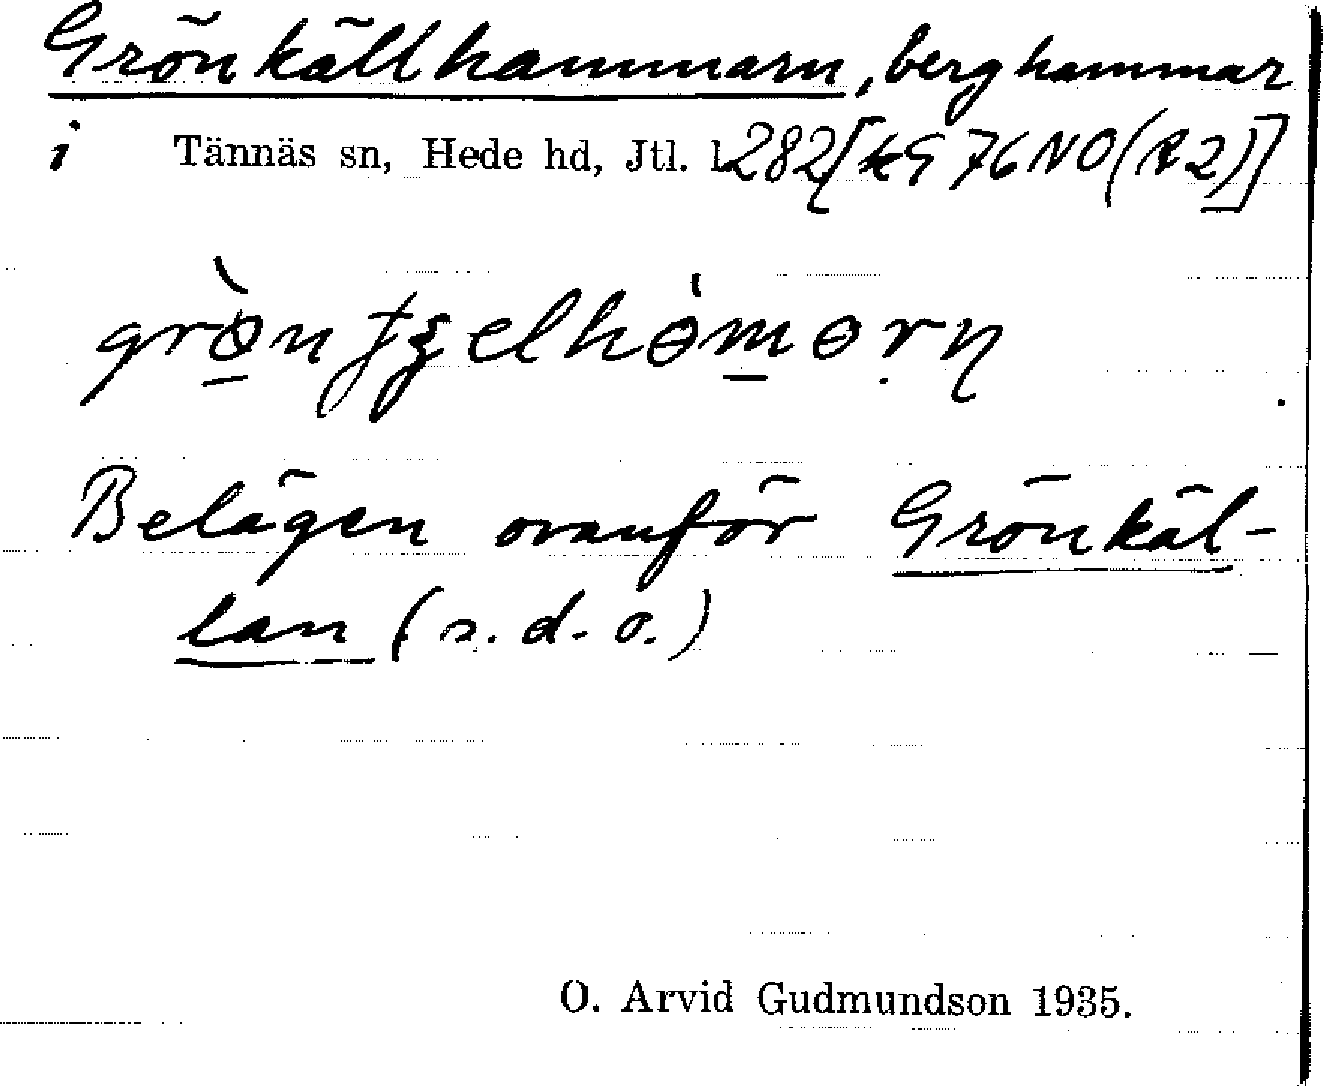 Grönkällhammarn, berghammar
i Tännäs sn, Hede hd, Jtl. l. 282 [kG 76 NO (R2)]
Belägen ovanför Grönkäl-
lan (s.d.o.)
O. Arvid Gudmundson 1935.